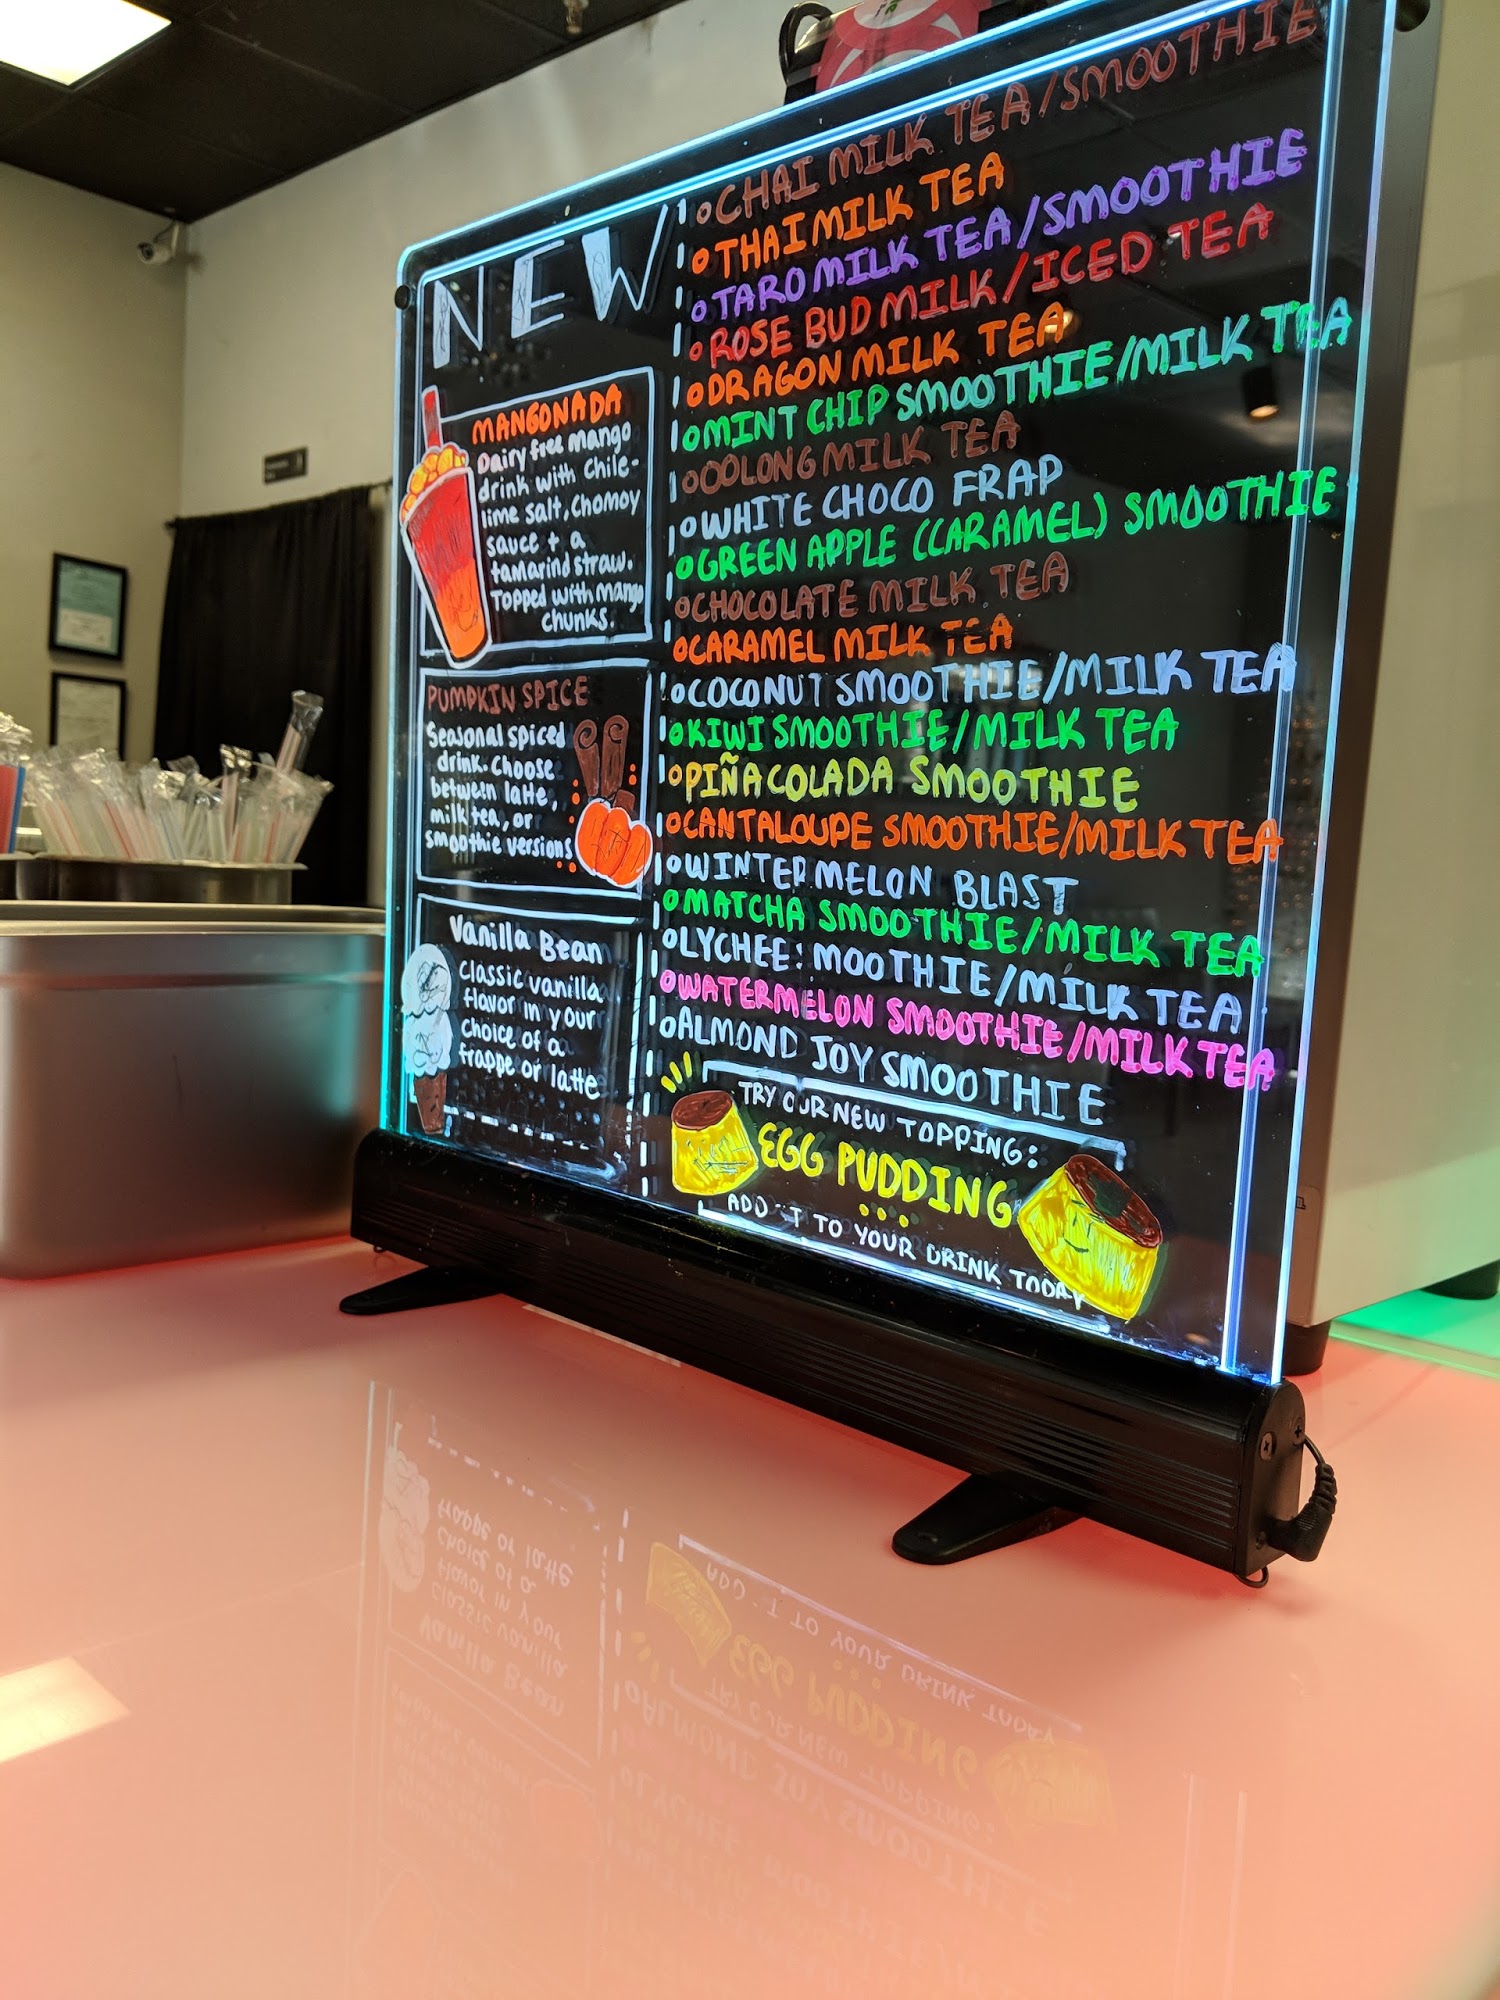 NEW
MANGONADA
Dairy free mango
drink with Chile-
lime salt, chomoy
sauce + a
tamarind straw.
Topped with mango
chunks.
PUMPKIN SPICE
Seasonal spiced
drink. Choose
between latte,
milk tea, or
smoothie versions
Vanilla Bean
Classic vanilla
flavor in your
choice of a
frappe or latte
CHAI MILK TEA/SMOOTHIE
THAI MILK TEA
TARO MILK TEA/SMOOTHIE
ROSE BUD MILK/ICED TEA
DRAGON MILK TEA
MINT CHIP SMOOTHIE/MILK TEA
OOLONG MILK TEA
WHITE CHOCO FRAP
GREEN APPLE (CARAMEL) SMOOTHIE
CHOCOLATE MILK TEA
CARAMEL MILK TEA
COCONUT SMOOTHIE/MILK TEA
KIWI SMOOTHIE/MILK TEA
PIÑA COLADA SMOOTHIE
CANTALOUPE SMOOTHIE/MILK TEA
WINTER MELON BLAST
MATCHA SMOOTHIE/MILK TEA
LYCHEE SMOOTHIE/MILK TEA
WATERMELON SMOOTHIE/MILK TEA
ALMOND JOY SMOOTHIE
TRY OUR NEW TOPPING:
EGG PUDDING
ADD IT TO YOUR DRINK TODAY